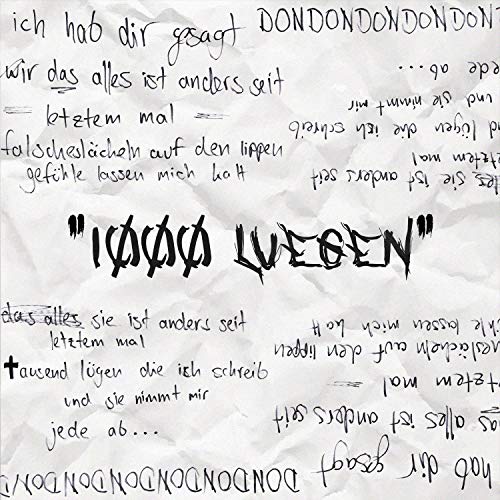 ich hab dir gesagt
DONDONDONDONDONT
wir das alles ist anders seit
letztem mal
falscheslächeln auf den lippen
gefühle lassen mich kalt
ede ab...
und sie nimmt mir
d lügen die ich schreib
etztem mal
es sie ist anders seit
"1ØØØ LUEGEN"
das alles sie ist anders seit
letztem mal
tausend lügen die ich schreib
und sie nimmt mir
jede ab...
hle lassen mich kalt
heslächeln auf den lippen
tztem mal
as alles ist anders seit
hab dir gesagt
DONDONDONDONDONDON